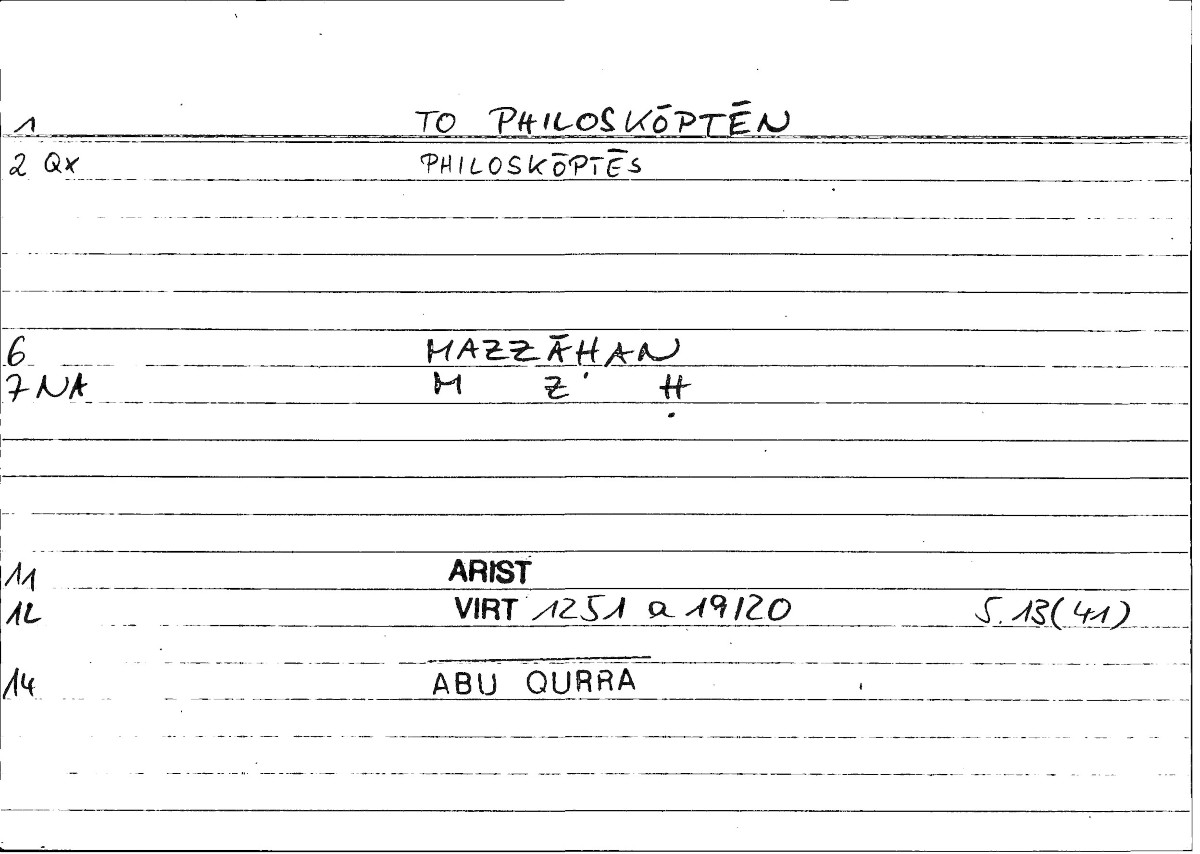 1 TO PHILOSKŌPTĒN
2 QX PHILOSKŌPTĒS
6 MAZZĀHAN
7 NA M Z Ḥ
11 ARIST
12 VIRT 1251 a 19/20 S. 13(41)
14 ABU QURRA